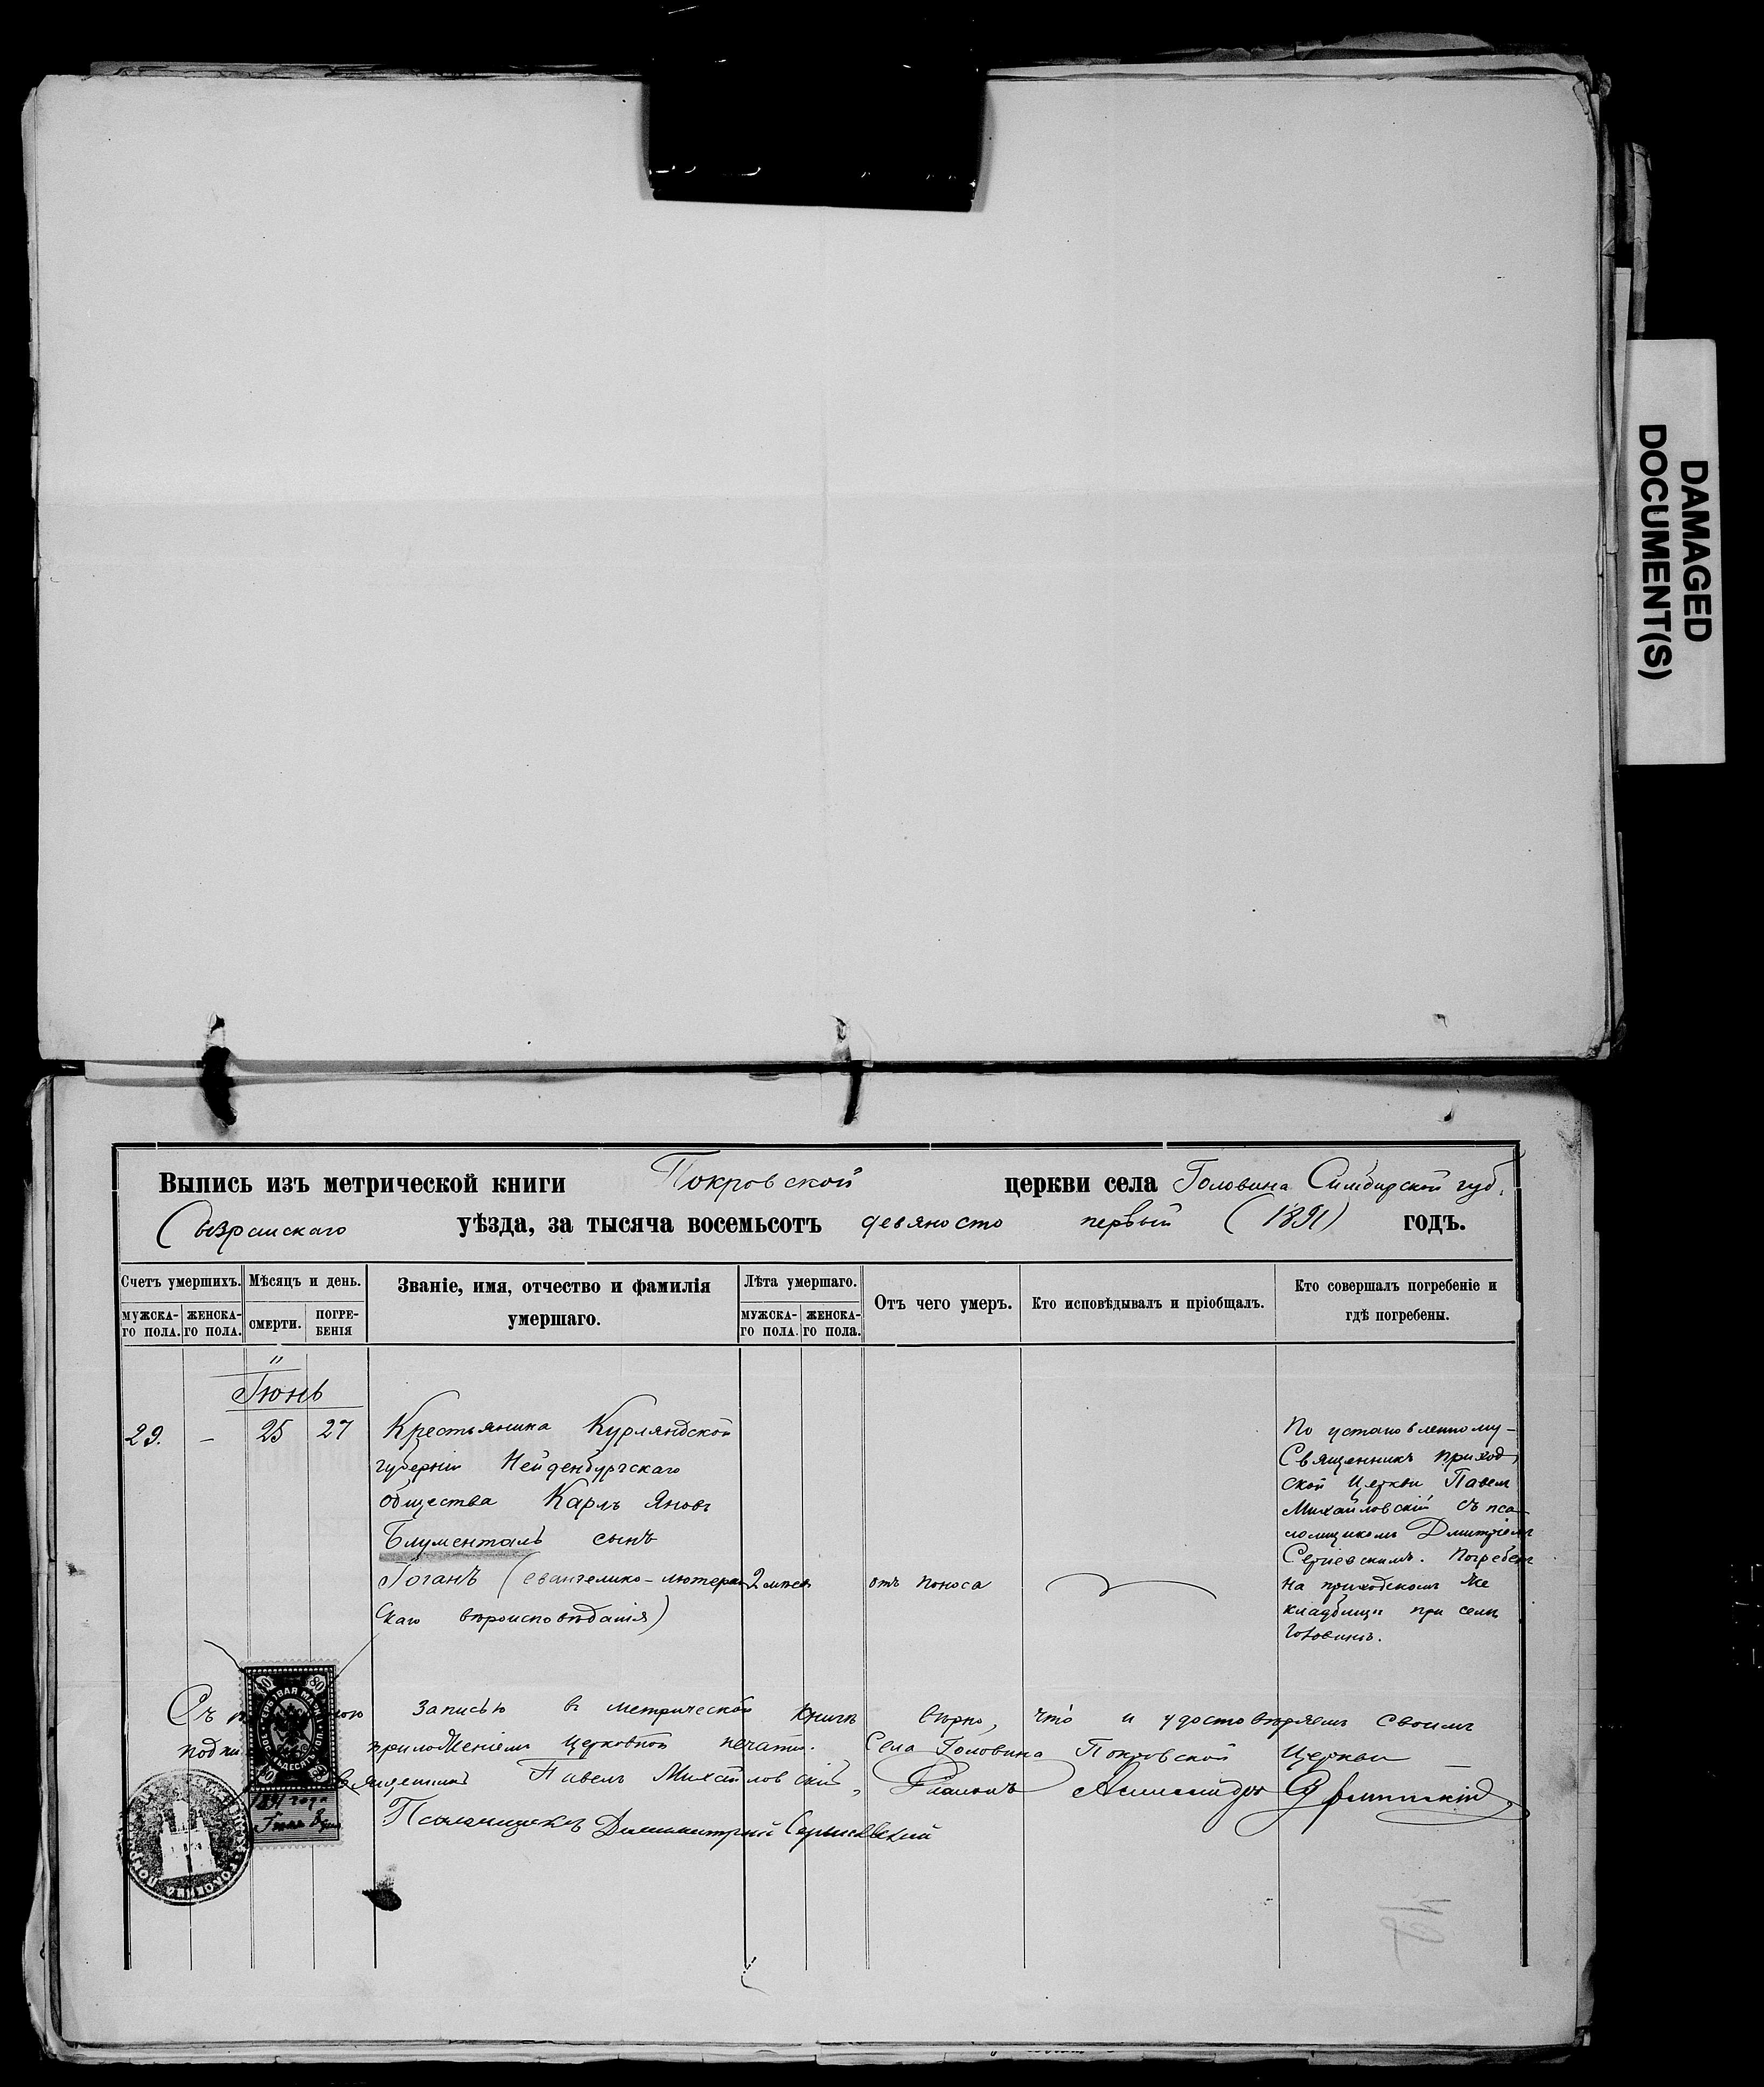 DAMAGED
DOCUMENT(S)
Выпись изъ метрической книги Покровской церкви села Головина Симбирской губ.
Сызранскаго уѣзда, за тысяча восемьсотъ девяносто первый (1891) годъ.
Счетъ умершихъ. Мѣсяцъ и день. Званіе, имя, отчество и фамилія умершаго. Лѣта умершаго. Отъ чего умеръ. Кто исповѣдывалъ и пріобщалъ. Кто совершалъ погребеніе и гдѣ погребены.
МУЖСКА-ГО ПОЛА. ЖЕНСКА-ГО ПОЛА. СМЕРТИ. ПОГРЕ-БЕНІЯ МУЖСКА-ГО ПОЛА. ЖЕНСКА-ГО ПОЛА.
"
Іюнь
29. – 25 27 Крестьянина Курляндской
губерніи Нейденбургскаго
общества Карлъ Яновъ
Блументаль сынъ
Іоганъ (евангелико-лютеран
скаго вѣроисповѣданія)
2 лѣтъ
отъ поноса
По установленному –
Священникъ приход
ской Церкви Павелъ
Михайловскій съ пса
ломщикомъ Дмитріемъ
Сергіевскимъ. Погребенъ
на приходскомъ же
кладбищѣ при селѣ
Головинѣ.
Съ записью въ метрической книгѣ вѣрно, что и удостовѣряемъ своимъ
подпи приложеніемъ церковной печати. Села Головина Покровской Церкви
Священникъ Павелъ Михайловскій,
Псаломщикъ Димитрий Сергиевский
80 80
1891 года
Іюля 8 дня